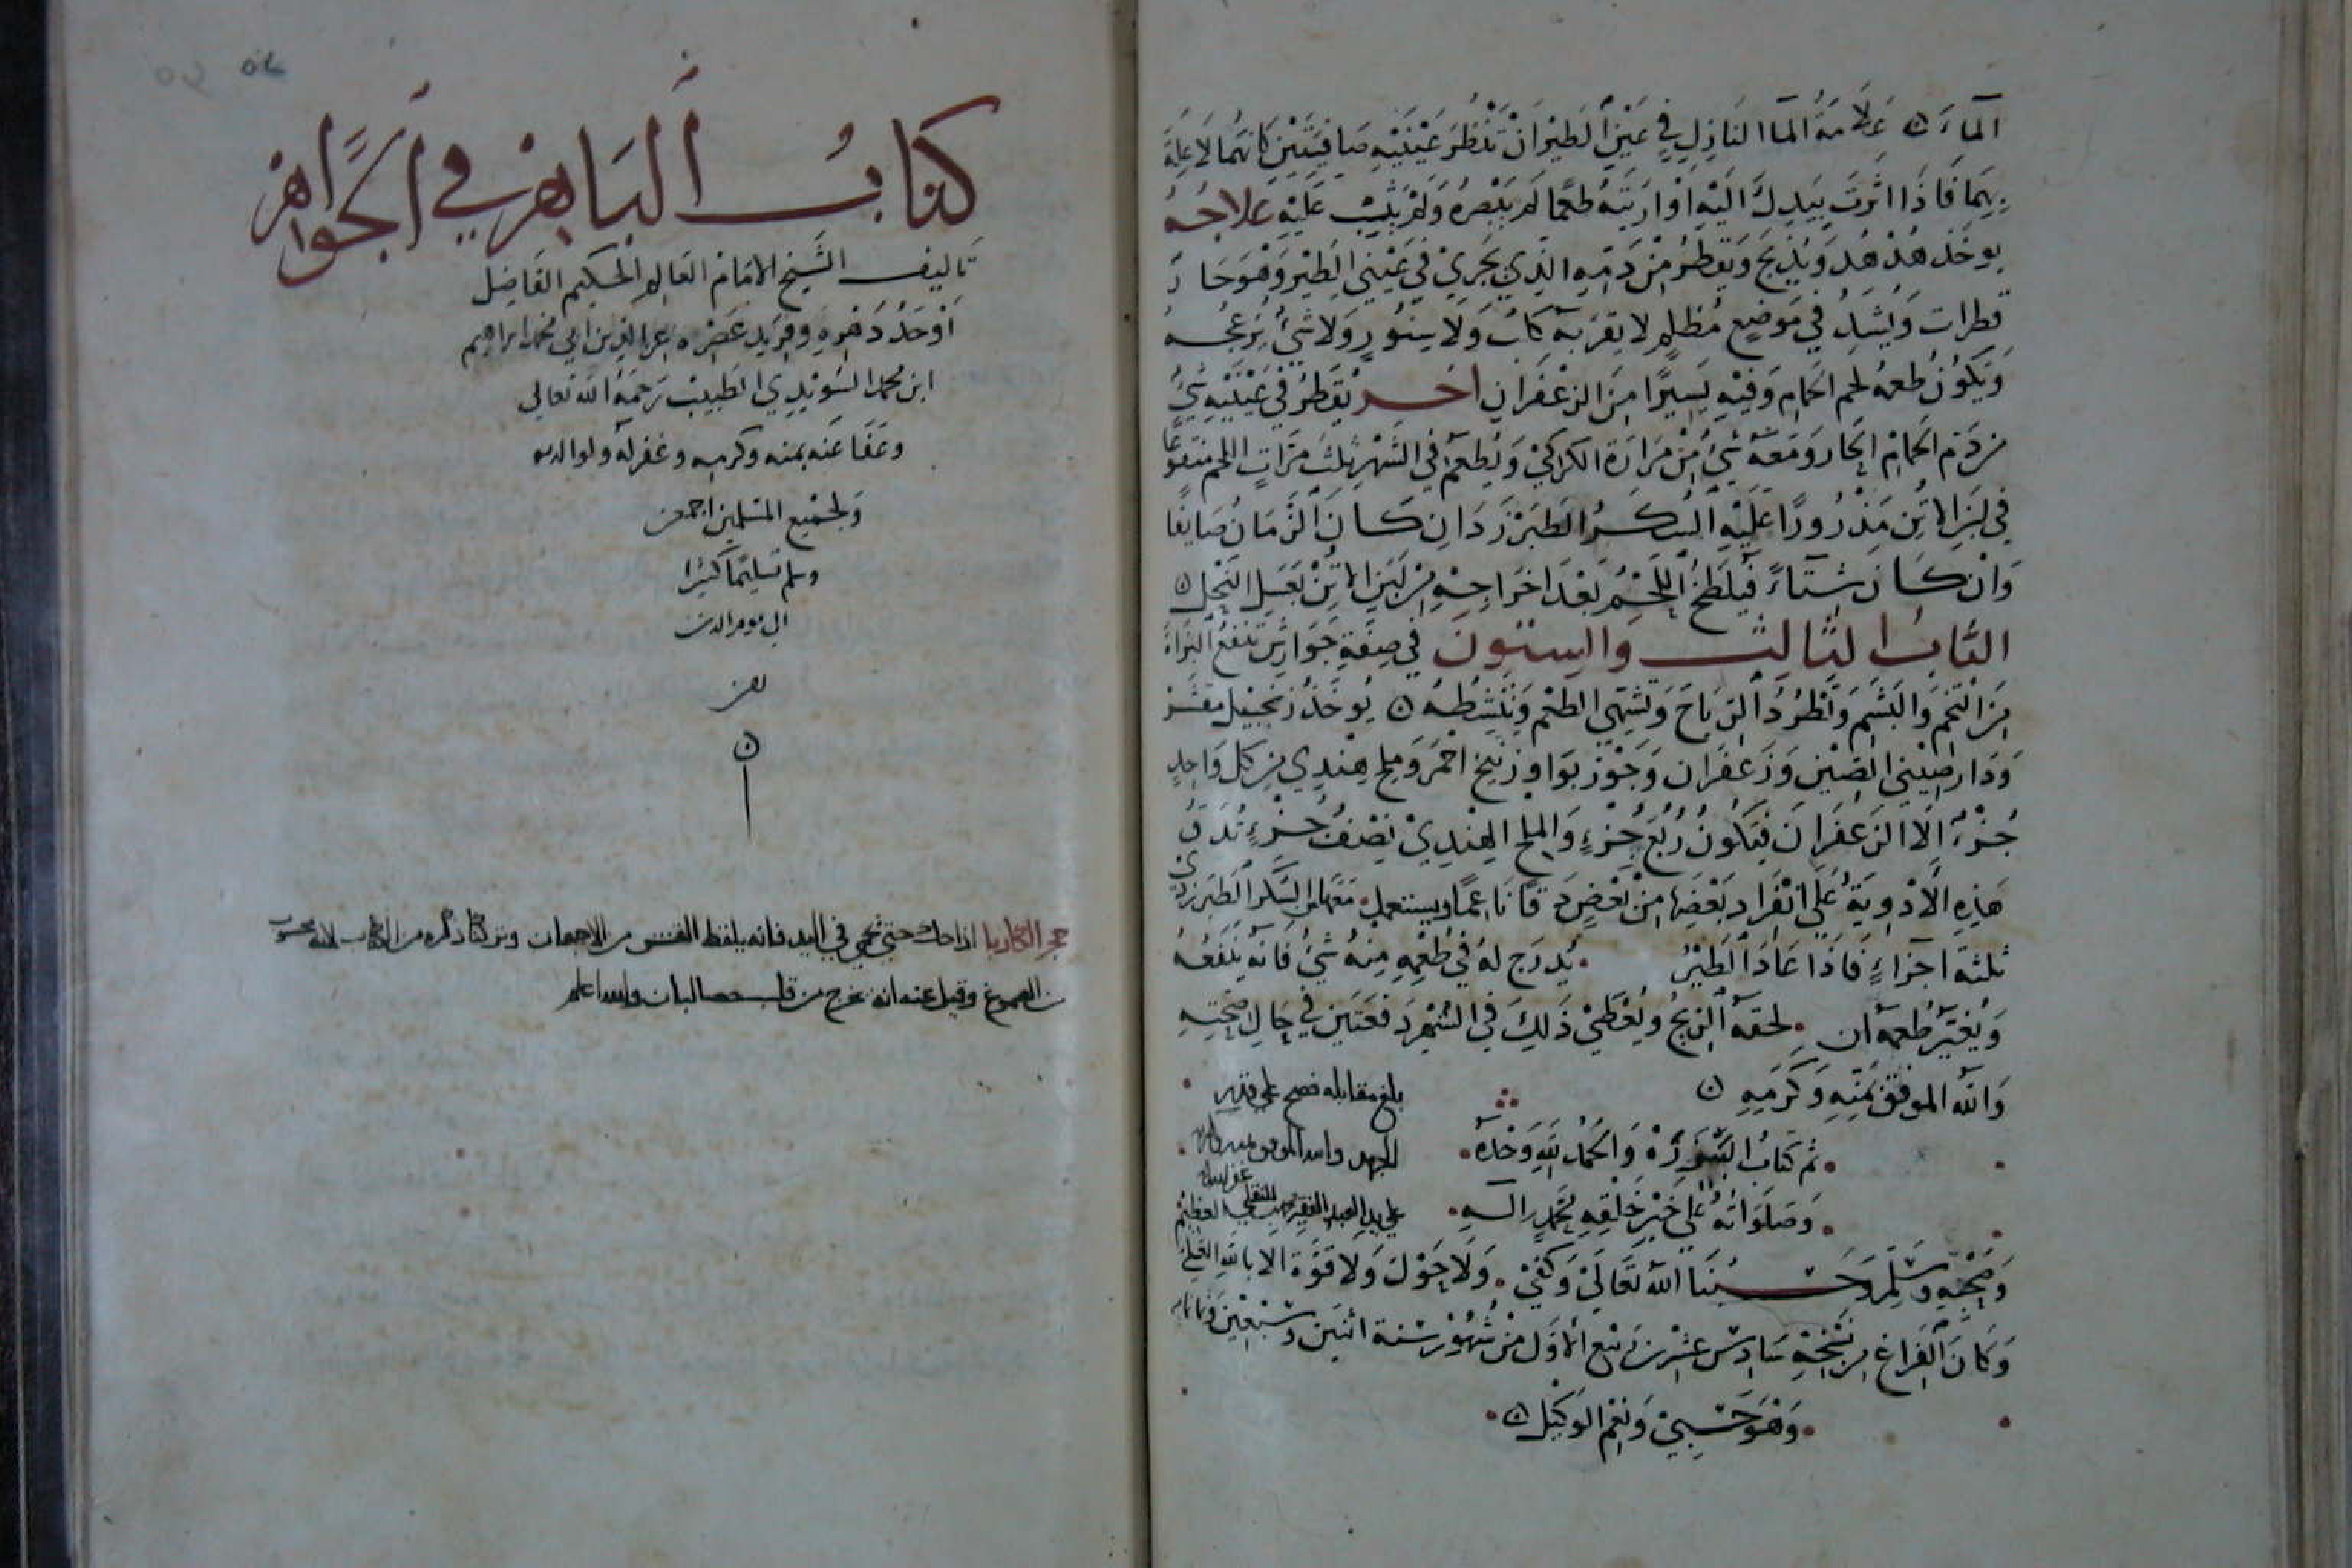 الماء ن علامة الما النازل في عين الطير ان تنظر عينيه صافيتين كانهما لا علة
بهما فاذا اشرت بيدك اليه او اريته طعما لم يبصره ولم يثب عليه علاجه
يوخذ هدهد ويذبح ويقطر من دمه الذي يجري في عيني الطير وهو حار
قطرات ويشد في موضع مظلم لا يقربه كلب ولا سنور ولا شي يزعجه
ويكون طعمه لحم الحمام وفيه يسيرا من الزعفران اخر يقطر في عينيه شي
من دم الحمام الحار ومعه شي من مرارة الكركي ويطعم في الشهر ثلث مرات اللحم منقوعا
في لبن الاتن مذرورا عليه السكر الطبرزد ان كان الزمان صايفا
وان كان شتاء فيلطخ اللحم بعد اخراجه من لبن الاتن بعسل النحل ن
الباب الثالث والستون في صفة جوارش تنفع البزاة
من التخم والبشم وتطرد الرياح وتشهي الطعم وتنشطه ن يوخذ زنجبيل مقشر
ودار صيني الصين وزعفران وجوز بوا وزرنيخ احمر وملح هندي من كل واحد
جزء الا الزعفران فيكون ربع جزء والملح الهندي نصف جزء تدق
هذه الادوية على انفراد بعضها من بعض دقا ناعما ويستعمل معها من السكر الطبرزد
ثلثة اجزاء فاذا عاد الطير يدرج له في طعمه منه شي فانه ينفعه
ويغير طعمه ان لحقه الريح ويعطي ذلك في الشهر دفعتين في حال صحته
والله الموفق بمنه وكرمه ن
تم كتاب البيزرة والحمد لله وحده
وصلواته على خير خلقه محمد واله
وصحبه وسلم وحسبنا الله تعالى وكفى ولا حول ولا قوة الا بالله العلي
العظيم
وكان الفراغ من نسخه سادس عشر ربيع الاول من شهور سنة اثنين وسبعين وثمانمايه
وهو حسبي ونعم الوكيل ن
بلغ مقابله فصح على قدر
الجهد والله الموفق
على يد العبد الفقير
كتاب الباهر في الجواهر
تاليف الشيخ الامام العالم الحكيم الفاضل
اوحد دهره وفريد عصره عز الدين ابي محمد ابراهيم
ابن محمد السويدي الطبيب رحمه الله تعالى
وعفا عنه بمنه وكرمه وغفر له ولوالديه
ولجميع المسلمين اجمعين
وسلم تسليما كثيرا
الى يوم الدين
امين
ن
حجر الكاربا اذا حك حتى يحمي في اليد فانه يلقط القش من الاجفان
من الصموغ وقيل عنه انه يخرج من قلب حصا البان والله اعلم